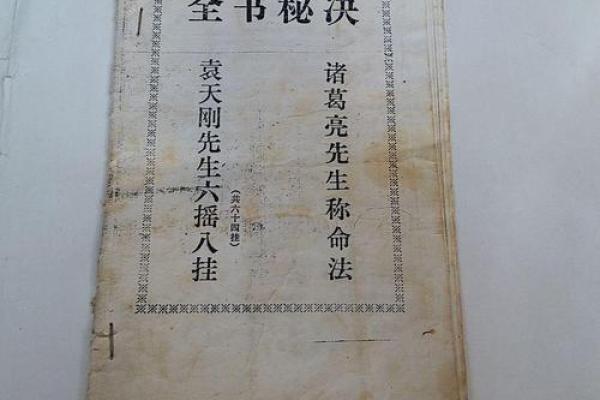 全书秘决
诸葛亮先生称命法
袁天刚先生六摇八挂
（共六十四挂）